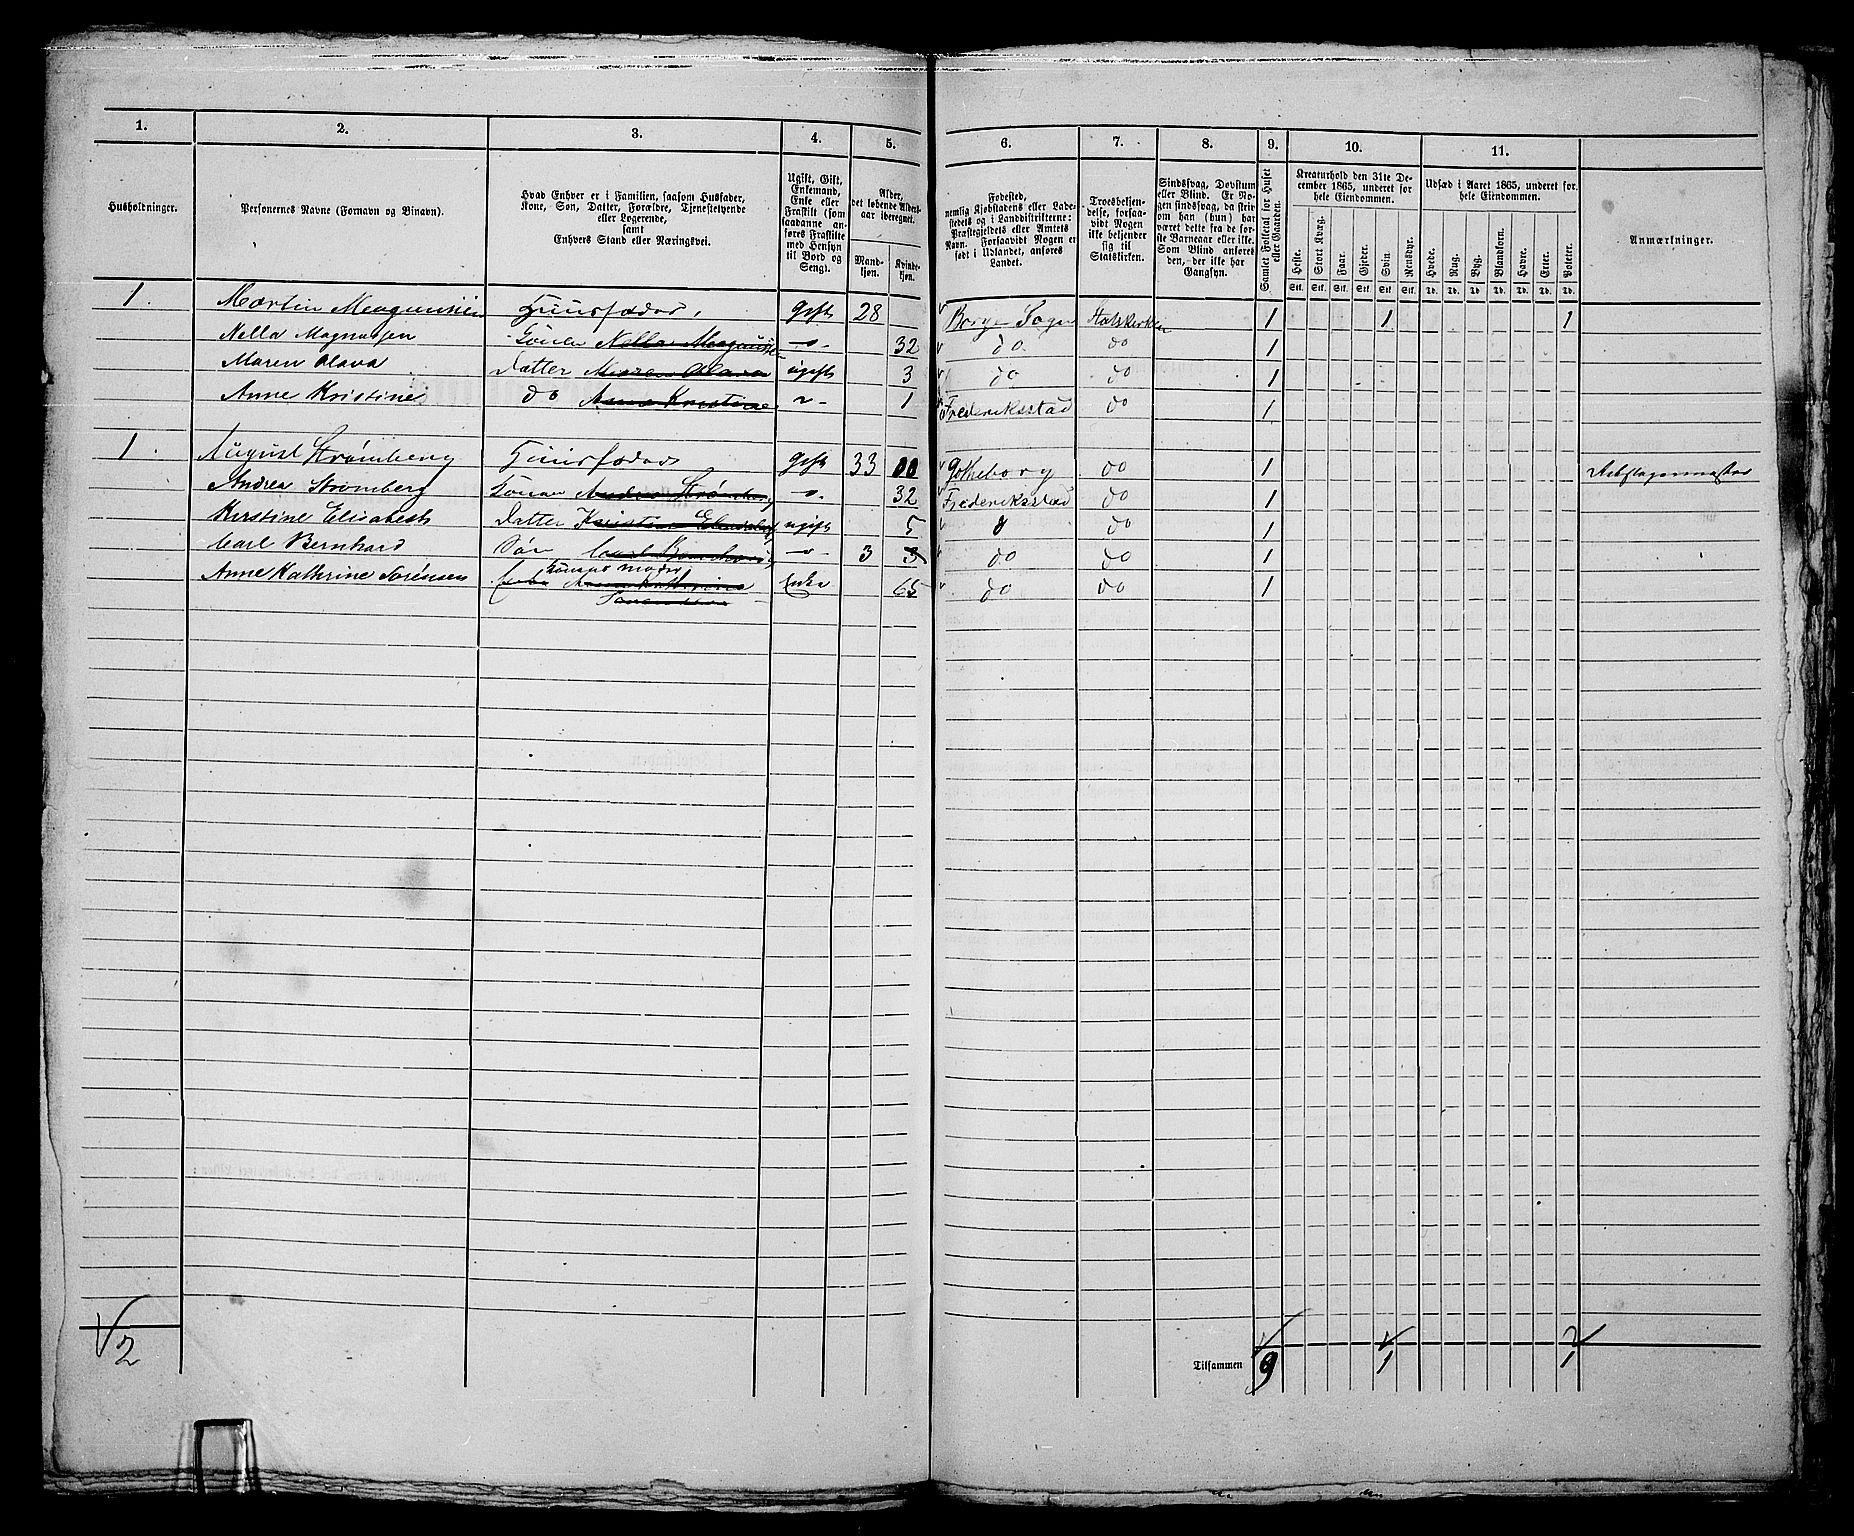 1. 2. 3. 4. 5. 6. 7. 8. 9. 10. 11.
Husholdninger.
Personernes Navne (Fornavn og Binavn).
Hvad Enhver er i Familien, saasom Husfader,
Kone, Søn, Datter, Forældre, Tjenestetyende
eller Logerende,
samt
Enhvers Stand eller Næringsvei.
Ugift, Gift,
Enkemand,
Enke eller
Fraskilt (som
saadanne an-
føres Fraskilte
med Hensyn
til Bord og
Seng).
Alder,
det løbende Alders-
aar iberegnet.
Mand-
kjøn.
Kvinde-
kjøn.
Fødested,
nemlig Kjøbstadens eller Lade-
stedets og i Landdistrikterne:
Præstegjeldets eller Amtets
Navn. Forsaavidt Nogen er
født i Udlandet, anføres
Landet.
Troesbekjen-
delse, forsaa-
vidt Nogen
ikke bekjender
sig til
Statskirken.
Sindssvag, Døvstum
eller Blind. Er No-
gen sindssvag, da skriv
om han (hun) har
været dette fra de før-
ste Barneaar eller ikke.
Som Blind anføres
den, der ikke har
Gangsyn.
Samlet Folketal for Huset
eller Gaarden.
Kreaturhold den 31te De-
cember 1865, underet for
hele Eiendommen.
Heste. Stort Kvæg. Faar. Gjeder. Svin. Rensdyr.
Stk. Stk. Stk. Stk. Stk. Stk.
Udsæd i Aaret 1865, underet for
hele Eiendommen.
Hvede. Rug. Byg. Blandkorn. Havre. Erter. Poteter.
Td. Td. Td. Td. Td. Td. Td.
Anmærkninger.
1. Martin Magnussen Huusfader, gift 28 Borge Sogn Statskirken 1 1 1
Nella Magnussen Konen Nella Magnussen -o- 32 do do 1
Maren Olava Datter Maren Olava ugift 3 do do 1
Anne Kristine do Anne Kristine -"- 1 Frederiksstad do 1
1. August Strømberg Huusfader gift 33 Gotheborg do 1
Andrea Strømberg Konen Andrea Strømberg -o- 32 Frederiksstad do 1
Kirstine Elisabeth Datter ugift 5 do 1
Carl Bernhard Søn Carl Bernhard -o- 3 3 do do 1
Anne Kathrine Sørensen Konens moder Anne Kathrine Enke 65 do do 1
Sørensen
2 Tilsammen 9 1 1